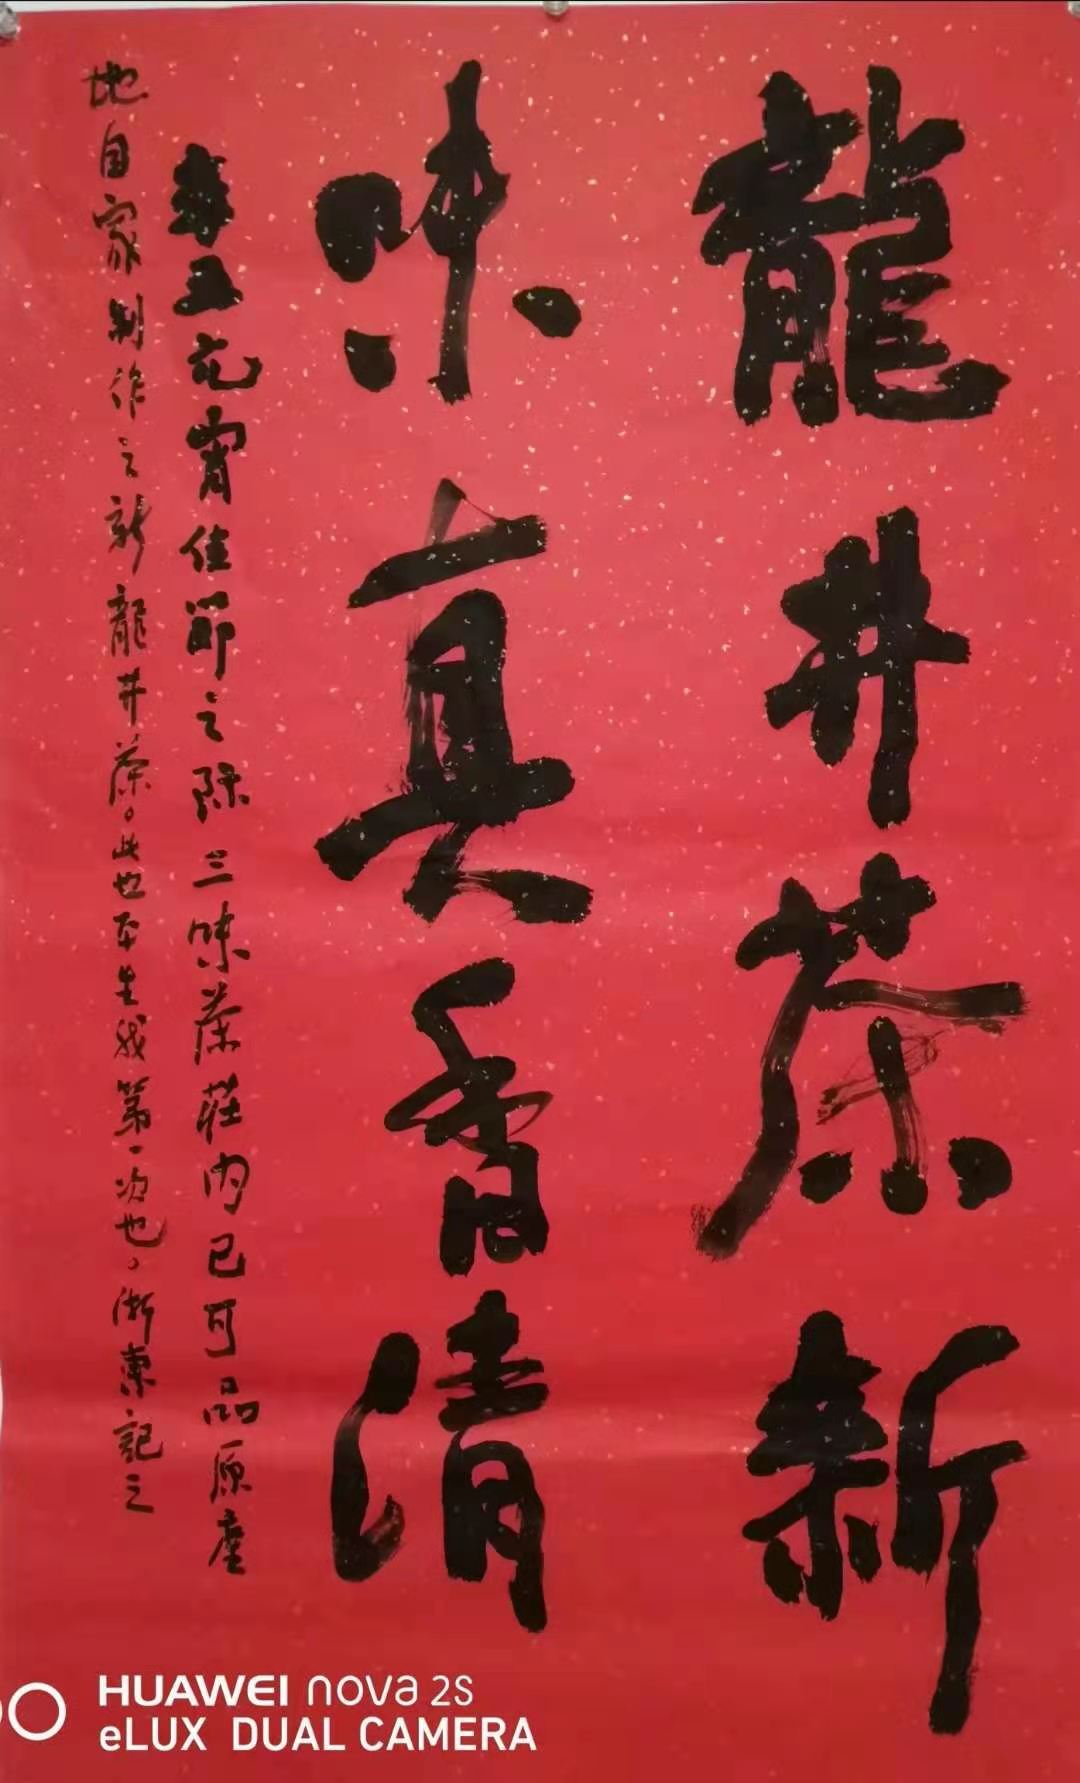 龍井茶新
味真香清
元宵佳節之际三味茶莊内已可品原產
地自家制作之新龍井茶。此也本生我第一次也，浙東記之
HUAWEI nova 2S
eLUX DUAL CAMERA